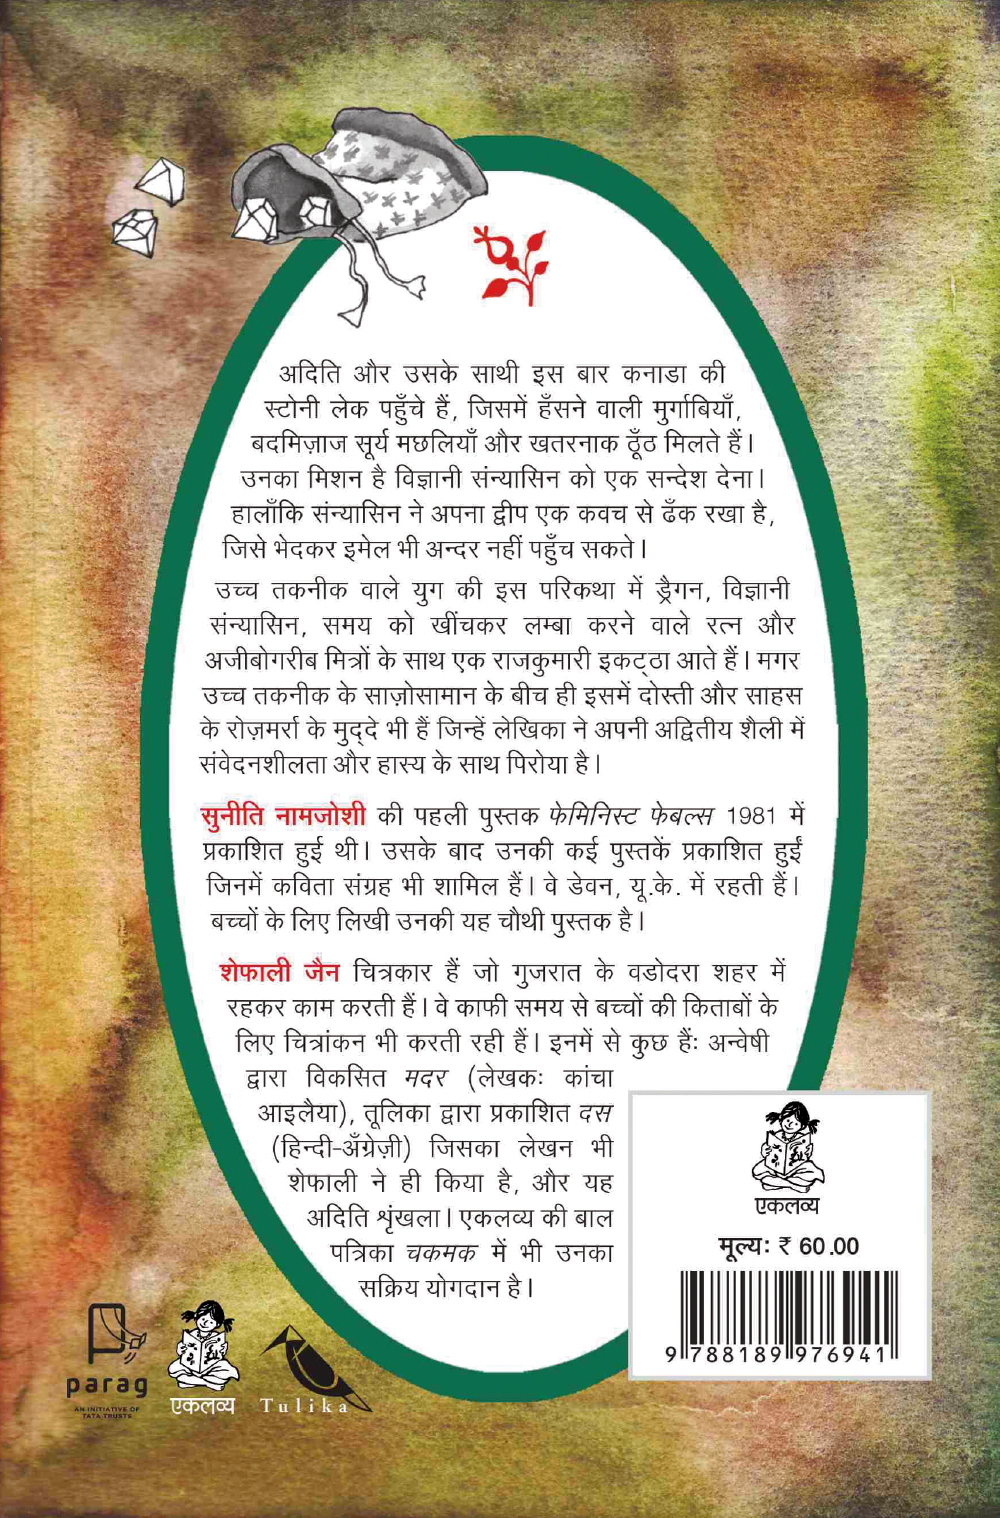 अदिति और उसके साथी इस बार कनाडा की
स्टोनी लेक पहुँचे हैं, जिसमें हँसने वाली मुर्गाबियाँ,
बदमिज़ाज सूर्य मछलियाँ और खतरनाक ठूँठ मिलते हैं।
उनका मिशन है विज्ञानी संन्यासिन को एक सन्देश देना।
हालाँकि संन्यासिन ने अपना द्वीप एक कवच से ढँक रखा है,
जिसे भेदकर इमेल भी अन्दर नहीं पहुँच सकते।
उच्च तकनीक वाले युग की इस परिकथा में ड्रैगन, विज्ञानी
संन्यासिन, समय को खींचकर लम्बा करने वाले रत्न और
अजीबोगरीब मित्रों के साथ एक राजकुमारी इकट्ठा आते हैं। मगर
उच्च तकनीक के साज़ोसामान के बीच ही इसमें दोस्ती और साहस
के रोज़मर्रा के मुद्दे भी हैं जिन्हें लेखिका ने अपनी अद्वितीय शैली में
संवेदनशीलता और हास्य के साथ पिरोया है।
सुनीति नामजोशी की पहली पुस्तक फेमिनिस्ट फेबल्स 1981 में
प्रकाशित हुई थी। उसके बाद उनकी कई पुस्तकें प्रकाशित हुईं
जिनमें कविता संग्रह भी शामिल हैं। वे डेवन, यू.के. में रहती हैं।
बच्चों के लिए लिखी उनकी यह चौथी पुस्तक है।
शेफाली जैन चित्रकार हैं जो गुजरात के वडोदरा शहर में
रहकर काम करती हैं। वे काफी समय से बच्चों की किताबों के
लिए चित्रांकन भी करती रही हैं। इनमें से कुछ हैंः अन्वेषी
द्वारा विकसित मदर (लेखकः कांचा
आइलैया), तूलिका द्वारा प्रकाशित दस
(हिन्दी-अँग्रेज़ी) जिसका लेखन भी
शेफाली ने ही किया है, और यह
अदिति शृंखला। एकलव्य की बाल
पत्रिका चकमक में भी उनका
सक्रिय योगदान है।
एकलव्य
मूल्यः ₹ 60.00
9 788189 976941
parag
AN INITIATIVE OF
TATA TRUSTS
एकलव्य
Tulika